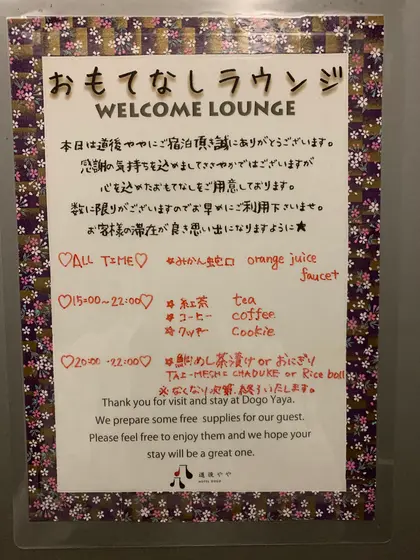 おもてなしラウンジ
WELCOME LOUNGE
本日は道後ややにご宿泊頂き誠にありがとうございます。
感謝の気持ちを込めましてささやかではございますが
心を込めたおもてなしをご用意しております。
数に限りがございますのでお早めにご利用下さいませ。
お客様の滞在が良き思い出になりますように★
♡ALL TIME♡ ★みかん蛇口 orange juice
faucet
♡15:00~22:00♡ ★紅茶 tea
★コーヒー coffee
★クッキー cookie
♡20:00-22:00♡ ★鯛めし茶漬け or おにぎり
TAI-MESHI CHADUKE or Rice ball
※なくなり次第、終了いたします。
Thank you for visit and stay at Dogo Yaya.
We prepare some free supplies for our guest.
Please feel free to enjoy them and we hope your
stay will be a great one.
道後やや
HOTEL DOGO